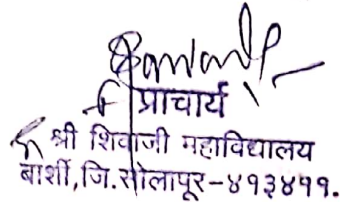 प्राचार्य
श्री शिवाजी महाविद्यालय
बार्शी, जि. सोलापूर-४१३४११.